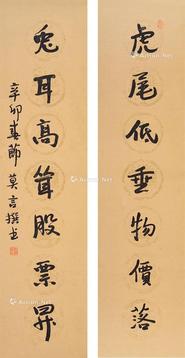 虎尾低垂物價落
兔耳高耸股票昇
辛卯春節 莫言撰书